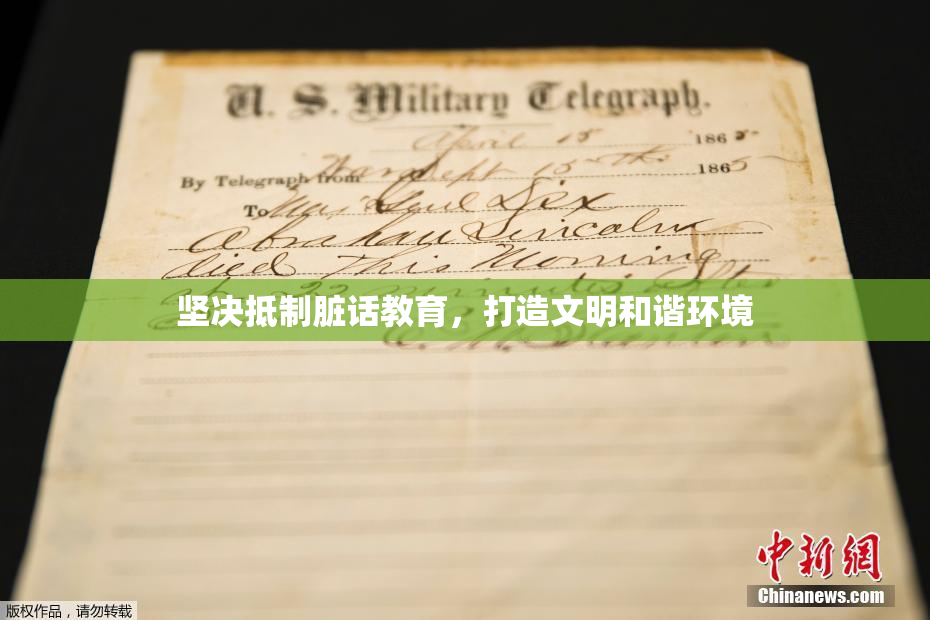 U. S. Military Telegraph.
April 15 1865.
By Telegraph from War Dept 15th 1865
To Maj Genl Dix
Abraham Lincoln
died This Morning
22 minutes after
坚决抵制脏话教育，打造文明和谐环境
E. M. Stanton
中新网
Chinanews.com
版权作品，请勿转载